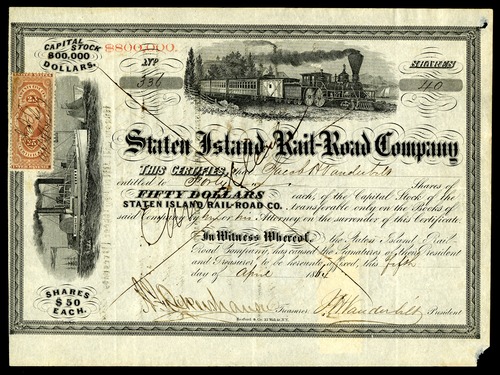 CAPITAL STOCK
800,000
DOLLARS.
$800,000.
No
336
SHARES
40
Staten Island Rail-Road Company
THIS CERTIFIES, that Jacob H Vanderbilt
entitled to Forty Shares of
FIFTY DOLLARS each, of the Capital Stock of the
STATEN ISLAND RAIL-ROAD CO. transferable only on the Books of
said Company by him or his Attorney on the surrender of this Certificate.
In Witness Whereof, the Staten Island Rail-
Road Company, has caused the Signatures of their President
and Treasurer, to be hereunto affixed, this fifth
day of April 186
Treasurer
J H Vanderbilt President
SHARES
$50
EACH.